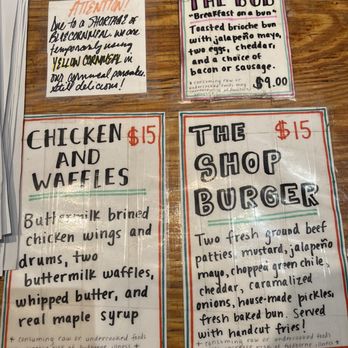 ATTENTION!
Due to a SHORTAGE of
BLUE CORNMEAL, we are
temporarily using
YELLOW CORNMEAL in
our cornmeal pancakes.
Still delicious!
THE BOB
"Breakfast on a bun"
Toasted brioche bun
with jalapeño mayo,
two eggs, cheddar,
and a choice of
bacon or sausage.
$9.00
* consuming raw or
undercooked foods
CHICKEN $15
AND
WAFFLES
Buttermilk brined
chicken wings and
drums, two
buttermilk waffles,
whipped butter, and
real maple syrup
* consuming raw or undercooked foods
THE $15
SHOP
BURGER
Two fresh ground beef
patties, mustard, jalapeño
mayo, chopped green chile,
cheddar, caramalized
onions, house-made pickles,
fresh baked bun. Served
with handcut fries!
* consuming raw or undercooked foods